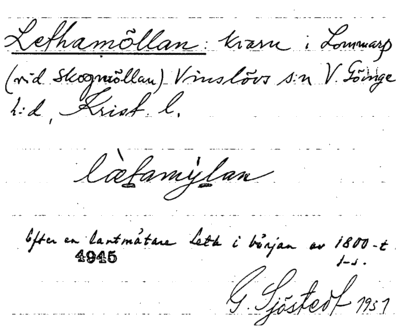 Lethamöllan: kvarn i Lommarp
(vid Skogmöllan) Vinslövs sn V. Göinge
h:d, Krist. l.
lætamýlan
Efter en lantmätare Leth i början av 1800-t
4945
G. Sjöstedt 1951